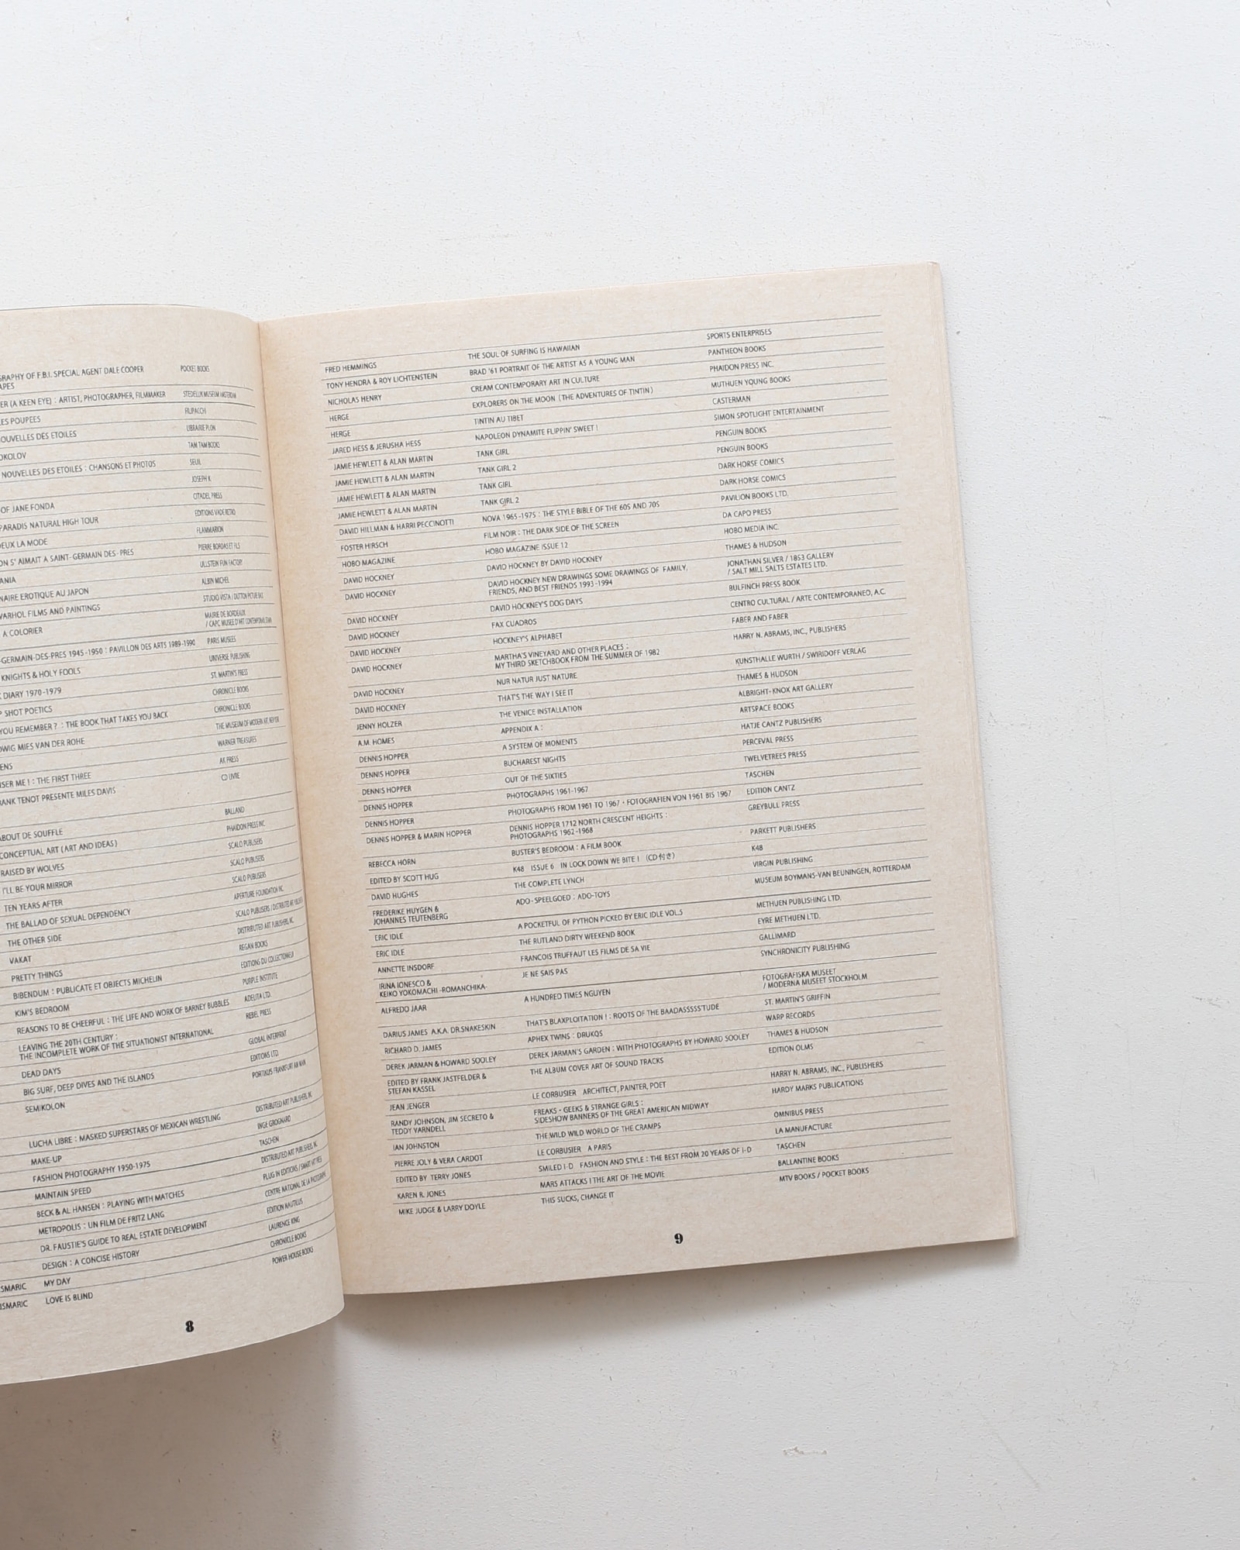 GRAPHY OF F.B.I. SPECIAL AGENT DALE COOPER POCKET BOOKS
APES
ER (A KEEN EYE) : ARTIST, PHOTOGRAPHER, FILMMAKER STEDELIJK MUSEUM AMSTERDAM
ES POUPEES FILIPACCHI
OUVELLES DES ETOILES LIBRAIRIE PLON
OKOLOV TAM TAM BOOKS
NOUVELLES DES ETOILES : CHANSONS ET PHOTOS SEUIL
JOSEPH K.
OF JANE FONDA CITADEL PRESS
PARADIS NATURAL HIGH TOUR EDITIONS VADE RETRO
EUX LA MODE FLAMMARION
ON S' AIMAIT A SAINT-GERMAIN-DES-PRES PIERRE BORDAS ET FILS
ANIA ULLSTEIN FUN FACTORY
NAIRE EROTIQUE AU JAPON ALBIN MICHEL
WARHOL FILMS AND PAINTINGS STUDIO VISTA / DUTTON PICTURE BACK
A COLORIER MAIRIE DE BORDEAUX
/ CAPC MUSEE D'ART CONTEMPORAIN
GERMAIN-DES-PRES 1945-1950 : PAVILLON DES ARTS 1989-1990 PARIS MUSEES
KNIGHTS & HOLY FOOLS UNIVERSE PUBLISHING
DIARY 1970-1979 ST. MARTIN'S PRESS
P SHOT POETICS CHRONICLE BOOKS
YOU REMEMBER ? : THE BOOK THAT TAKES YOU BACK CHRONICLE BOOKS
DWIG MIES VAN DER ROHE THE MUSEUM OF MODERN ART, NEW YORK
ENS WARNER TREASURES
SER ME ! : THE FIRST THREE AK PRESS
ANK TENOT PRESENTE MILES DAVIS CD LIVRE
ABOUT DE SOUFFLE BALLAND
CONCEPTUAL ART (ART AND IDEAS) PHAIDON PRESS INC.
RAISED BY WOLVES SCALO PUBLISERS
I'LL BE YOUR MIRROR SCALO PUBLISERS
TEN YEARS AFTER SCALO PUBLISERS
THE BALLAD OF SEXUAL DEPENDENCY APERTURE FOUNDATION INC.
THE OTHER SIDE SCALO PUBLISERS / DISTRIBUTED ART PUBLISERS
VAKAT DISTRIBUTED ART PUBLISHER, INC.
PRETTY THINGS REGAN BOOKS
BIBENDUM : PUBLICATE ET OBJECTS MICHELIN EDITIONS DU COLLECTIONEUR
KIM'S BEDROOM PURPLE INSTITUTE
REASONS TO BE CHEERFUL : THE LIFE AND WORK OF BARNEY BUBBLES ADELITA LTD.
LEAVING THE 20TH CENTURY : REBEL PRESS
THE INCOMPLETE WORK OF THE SITUATIONIST INTERNATIONAL
DEAD DAYS GLOBAL INTERPRINT
BIG SURF, DEEP DIVES AND THE ISLANDS EDITIONS LTD.
SEMIKOLON PORTIKUS FRANKFURT AM MAIN
LUCHA LIBRE : MASKED SUPERSTARS OF MEXICAN WRESTLING DISTRIBUTED ART PUBLISHER, INC.
MAKE-UP
FASHION PHOTOGRAPHY 1950-1975 TASCHEN
MAINTAIN SPEED DISTRIBUTED ART PUBLISER, INC.
BECK & AL HANSEN : PLAYING WITH MATCHES PLUG IN EDITIONS / SMART ART PRESS
METROPOLIS : UN FILM DE FRITZ LANG CENTRE NATIONAL DE LA PHOTOGRAPHIE
DR. FAUSTIE'S GUIDE TO REAL ESTATE DEVELOPMENT EDITION NAUTILUS
DESIGN : A CONCISE HISTORY LAURENCE KING
SMARIC MY DAY CHRONICLE BOOKS
ISMARIC LOVE IS BLIND POWER HOUSE BOOKS
8
FRED HEMMINGS THE SOUL OF SURFING IS HAWAIIAN SPORTS ENTERPRISES
TONY HENDRA & ROY LICHTENSTEIN BRAD '61 PORTRAIT OF THE ARTIST AS A YOUNG MAN PANTHEON BOOKS
NICHOLAS HENRY CREAM CONTEMPORARY ART IN CULTURE PHAIDON PRESS INC.
HERGE EXPLORERS ON THE MOON (THE ADVENTURES OF TINTIN) MUTHUEN YOUNG BOOKS
HERGE TINTIN AU TIBET CASTERMAN
JARED HESS & JERUSHA HESS NAPOLEON DYNAMITE FLIPPIN' SWEET ! SIMON SPOTLIGHT ENTERTAINMENT
JAMIE HEWLETT & ALAN MARTIN TANK GIRL PENGUIN BOOKS
JAMIE HEWLETT & ALAN MARTIN TANK GIRL 2 PENGUIN BOOKS
JAMIE HEWLETT & ALAN MARTIN TANK GIRL DARK HORSE COMICS
JAMIE HEWLETT & ALAN MARTIN TANK GIRL 2 DARK HORSE COMICS
DAVID HILLMAN & HARRI PECCINOTTI NOVA 1965-1975 : THE STYLE BIBLE OF THE 60S AND 70S PAVILION BOOKS LTD.
FOSTER HIRSCH FILM NOIR : THE DARK SIDE OF THE SCREEN DA CAPO PRESS
HOBO MAGAZINE HOBO MAGAZINE ISSUE 12 HOBO MEDIA INC.
DAVID HOCKNEY DAVID HOCKNEY BY DAVID HOCKNEY THAMES & HUDSON
DAVID HOCKNEY DAVID HOCKNEY NEW DRAWINGS SOME DRAWINGS OF FAMILY, JONATHAN SILVER / 1853 GALLERY
FRIENDS, AND BEST FRIENDS 1993-1994 / SALT MILL SALTS ESTATES LTD.
DAVID HOCKNEY DAVID HOCKNEY'S DOG DAYS BULFINCH PRESS BOOK
DAVID HOCKNEY FAX CUADROS CENTRO CULTURAL / ARTE CONTEMPORANEO, A.C.
DAVID HOCKNEY HOCKNEY'S ALPHABET FABER AND FABER
DAVID HOCKNEY MARTHA'S VINEYARD AND OTHER PLACES : HARRY N. ABRAMS, INC., PUBLISHERS
MY THIRD SKETCHBOOK FROM THE SUMMER OF 1982
DAVID HOCKNEY NUR NATUR JUST NATURE KUNSTHALLE WURTH / SWIRIDOFF VERLAG
DAVID HOCKNEY THAT'S THE WAY I SEE IT THAMES & HUDSON
JENNY HOLZER THE VENICE INSTALLATION ALBRIGHT-KNOX ART GALLERY
A.M. HOMES APPENDIX A : ARTSPACE BOOKS
DENNIS HOPPER A SYSTEM OF MOMENTS HATJE CANTZ PUBLISHERS
DENNIS HOPPER BUCHAREST NIGHTS PERCEVAL PRESS
DENNIS HOPPER OUT OF THE SIXTIES TWELVETREES PRESS
DENNIS HOPPER PHOTOGRAPHS 1961-1967 TASCHEN
DENNIS HOPPER PHOTOGRAPHS FROM 1961 TO 1967・FOTOGRAFIEN VON 1961 BIS 1967 EDITION CANTZ
DENNIS HOPPER & MARIN HOPPER DENNIS HOPPER 1712 NORTH CRESCENT HEIGHTS : GREYBULL PRESS
PHOTOGRAPHS 1962-1968
REBECCA HORN BUSTER'S BEDROOM : A FILM BOOK PARKETT PUBLISHERS
EDITED BY SCOTT HUG K48 ISSUE 6 IN LOCK DOWN WE BITE ! (CD付き) K48
DAVID HUGHES THE COMPLETE LYNCH VIRGIN PUBLISHING
FREDERIKE HUYGEN & ADO・SPEELGOED : ADO-TOYS MUSEUM BOYMANS-VAN BEUNINGEN, ROTTERDAM
JOHANNES TEUTENBERG
ERIC IDLE A POCKETFUL OF PYTHON PICKED BY ERIC IDLE VOL.5 METHUEN PUBLISHING LTD.
ERIC IDLE THE RUTLAND DIRTY WEEKEND BOOK EYRE METHUEN LTD.
ANNETTE INSDORF FRANCOIS TRUFFAUT LES FILMS DE SA VIE GALLIMARD
IRINA IONESCO & JE NE SAIS PAS SYNCHRONICITY PUBLISHING
KEIKO YOKOMACHI-ROMANCHIKA-
ALFREDO JAAR A HUNDRED TIMES NGUYEN FOTOGRAFISKA MUSEET
/ MODERNA MUSEET STOCKHOLM
DARIUS JAMES A.K.A. DR.SNAKESKIN THAT'S BLAXPLOITATION ! : ROOTS OF THE BAADASSSSS'TUDE ST. MARTIN'S GRIFFIN
RICHARD D. JAMES APHEX TWINS : DRUKQS WARP RECORDS
DEREK JARMAN & HOWARD SOOLEY DEREK JARMAN'S GARDEN : WITH PHOTOGRAPHS BY HOWARD SOOLEY THAMES & HUDSON
EDITED BY FRANK JASTFELDER & THE ALBUM COVER ART OF SOUND TRACKS EDITION OLMS
STEFAN KASSEL
JEAN JENGER LE CORBUSIER ARCHITECT, PAINTER, POET HARRY N. ABRAMS, INC., PUBLISHERS
RANDY JOHNSON, JIM SECRETO & FREAKS・GEEKS & STRANGE GIRLS : HARDY MARKS PUBLICATIONS
TEDDY VARNDELL SIDESHOW BANNERS OF THE GREAT AMERICAN MIDWAY
IAN JOHNSTON THE WILD WILD WORLD OF THE CRAMPS OMNIBUS PRESS
PIERRE JOLY & VERA CARDOT LE CORBUSIER A PARIS LA MANUFACTURE
EDITED BY TERRY JONES SMILED I-D FASHION AND STYLE : THE BEST FROM 20 YEARS OF I-D TASCHEN
KAREN R. JONES MARS ATTACKS ! THE ART OF THE MOVIE BALLANTINE BOOKS
MIKE JUDGE & LARRY DOYLE THIS SUCKS, CHANGE IT MTV BOOKS / POCKET BOOKS
9